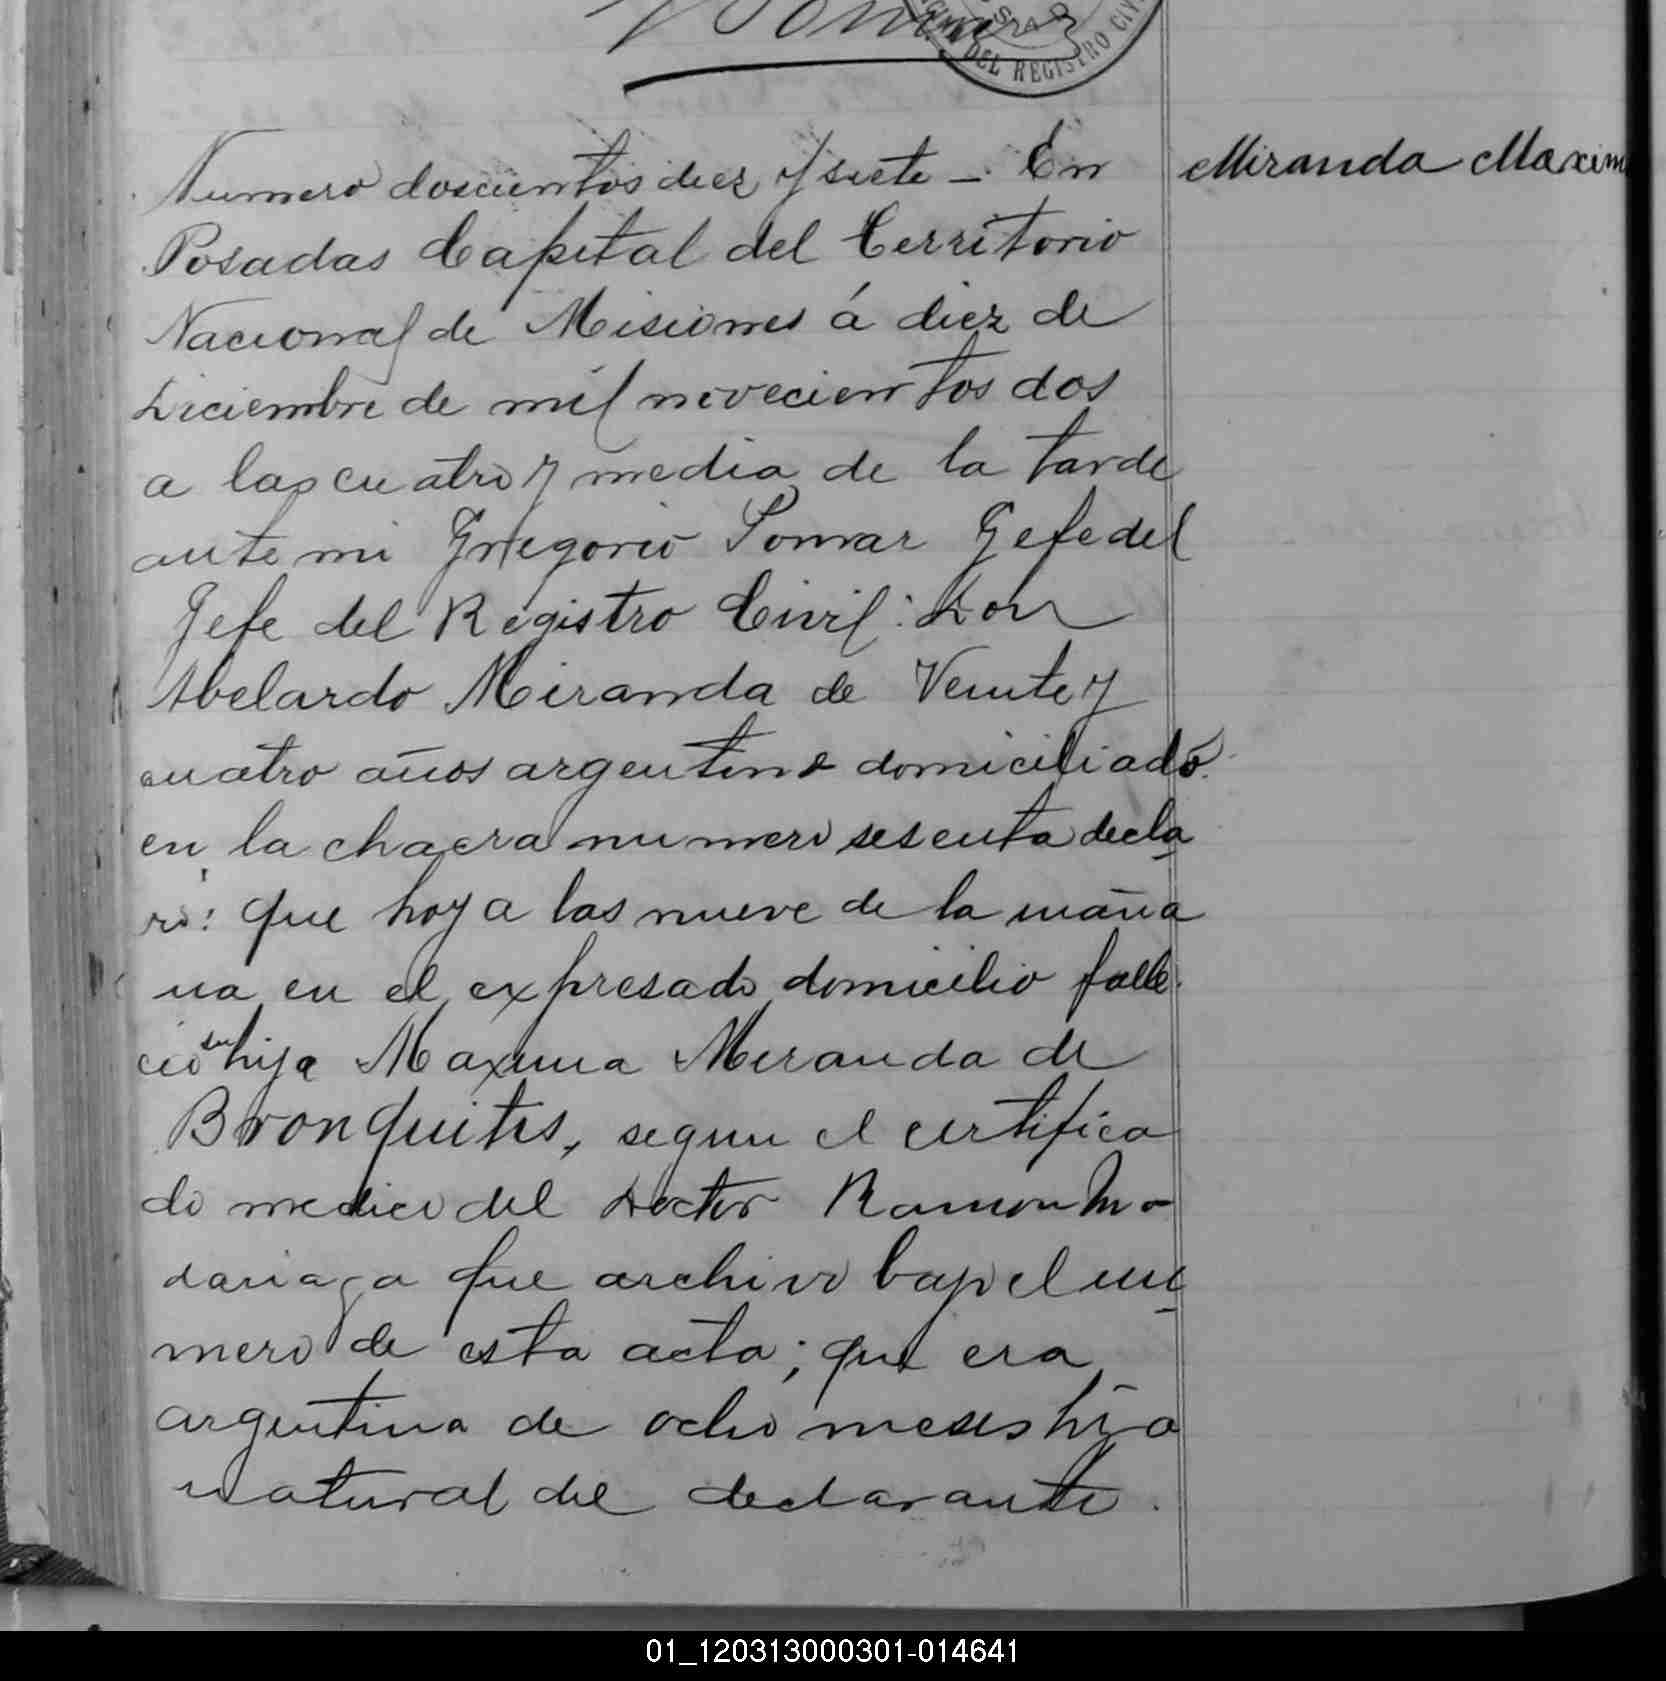 DEL REGISTRO CIV
Numero doscientos diez y siete – En
Miranda Maxim
Posadas Capital del Territorio
Nacional de Misiones á diez de
Diciembre de mil novecientos dos
a las cuatro y media de la tarde
ante mi Gregorio Pomar Gefe del
Jefe del Registro Civil: Don
Abelardo Miranda de Veinte y
cuatro años argentino domiciliado
en la chacra numero sesenta decla
ró: que hoy a las nueve de la maña
na en el expresado domicilio falle
ció su hija Maxima Miranda de
Bronquitis, segun el certifica
do medico del Doctor Ramon Ma
dariaga que archivo bajo el nu
mero de esta acta; que era
argentina de ocho meses hija
natural del declarante.
01_120313000301-014641